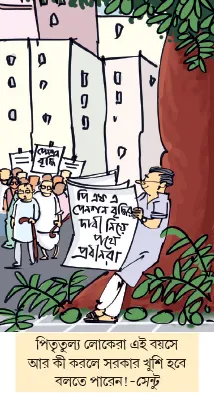 পেনশন
বৃদ্ধি
পি এফ এ
পেনশন বৃদ্ধির
দাবী নিয়ে
পথে
প্রবীনরা
পিতৃতুল্য লোকেরা এই বয়সে
আর কী করলে সরকার খুশি হবে
বলতে পারেন! -সেন্টু